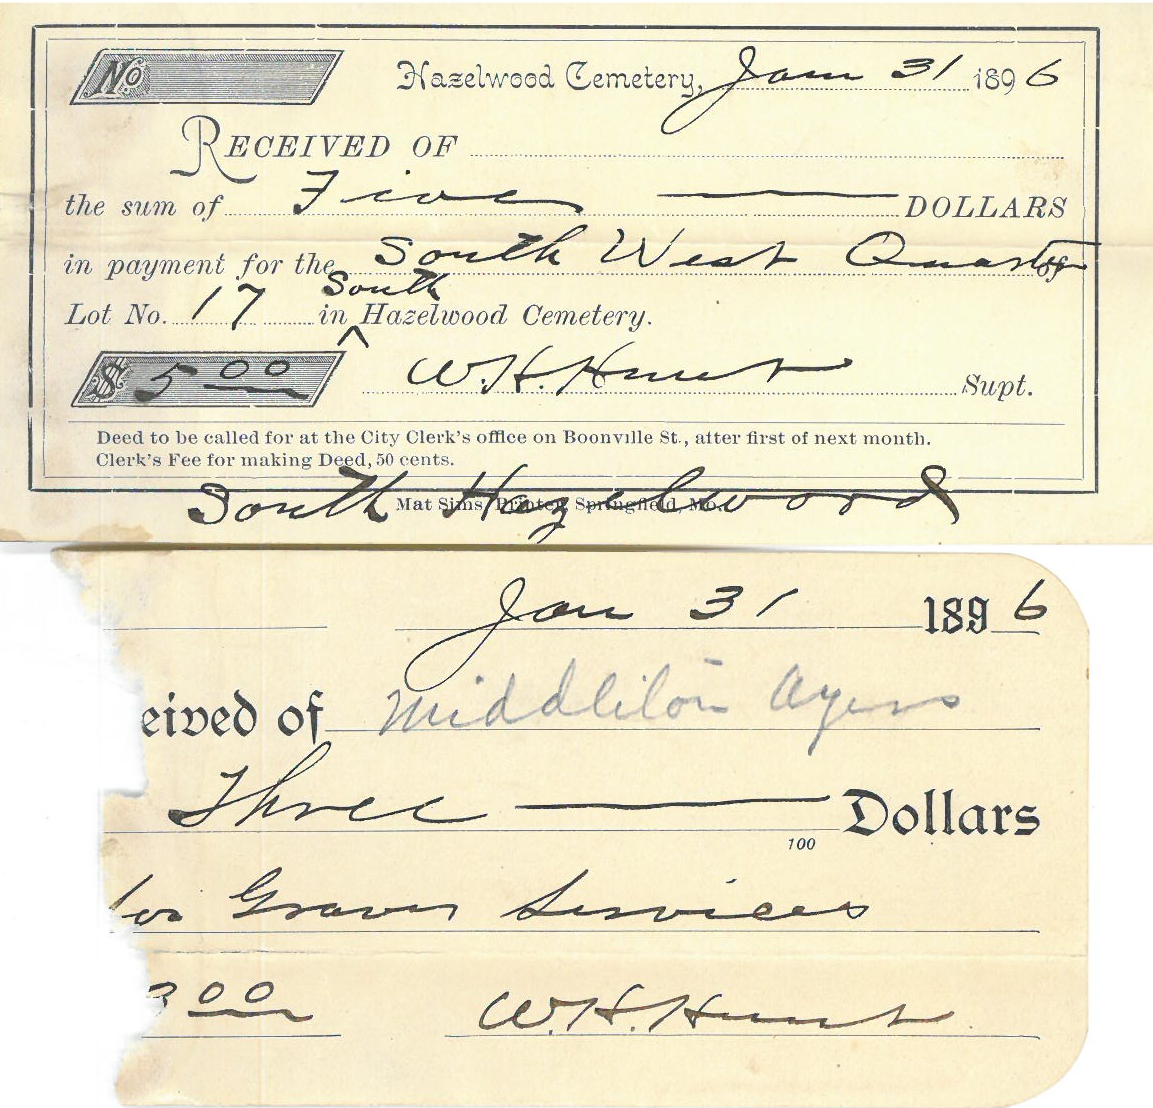 No
Hazelwood Cemetery, Jan 31 1896
RECEIVED OF
the sum of Five DOLLARS
in payment for the South West Quarter of
South
Lot No. 17 in ^ Hazelwood Cemetery.
$ 5 00 W. H. Hunt Supt.
Deed to be called for at the City Clerk's office on Boonville St., after first of next month.
Clerk's Fee for making Deed, 50 cents.
Mat Sims, Printer, Springfield, Mo.
South Hazelwood
Jan 31 1896
eived of Middleton Ayers
Three Dollars
100
for Graves Services
3 00 W. H. Hunt